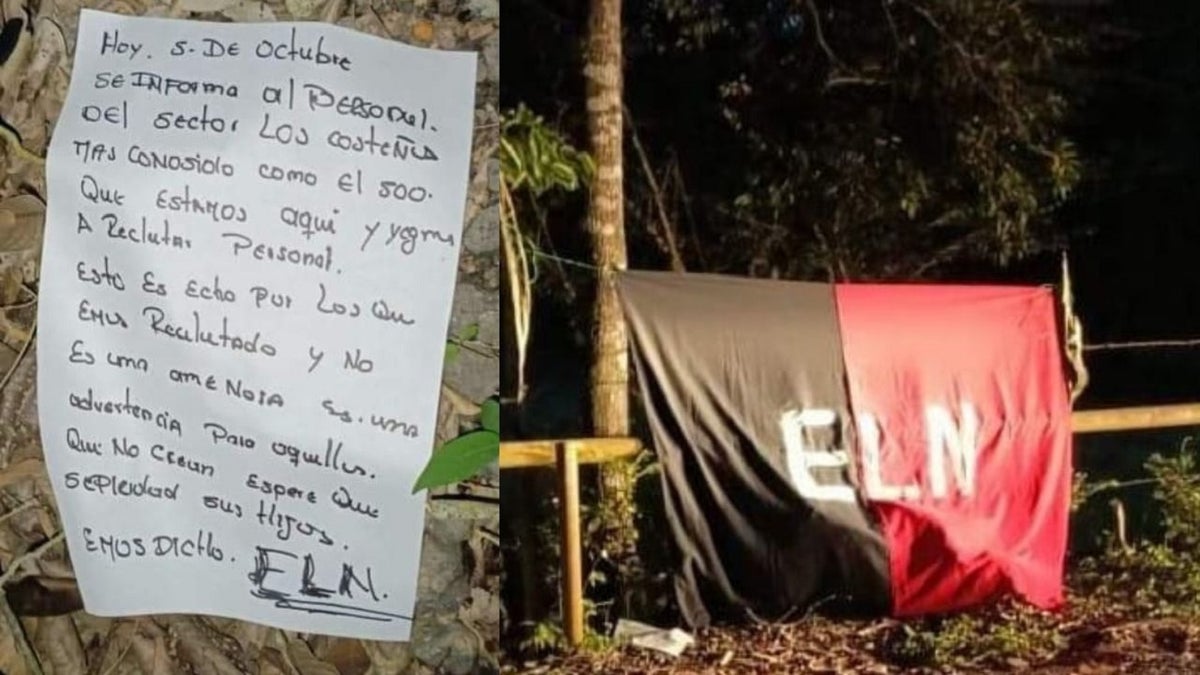 Hoy. 5. DE Octubre
SE INFORMA al PERSONAL.
DEL SECTOR LOS COSTEÑOS
MAS CONOSIDO COMO El 500.
Que ESTAMOS aqui y
A Reclutar Personal.
ESTO ES ECHO POR LOS QUE
EMOS Reclutado y NO
ES una amENASA ES. una
advertencia Para aquellos.
Que NO CREAN ESPERE QUE
SUS HIJOS.
EMOS DICHO. ELN.
ELN